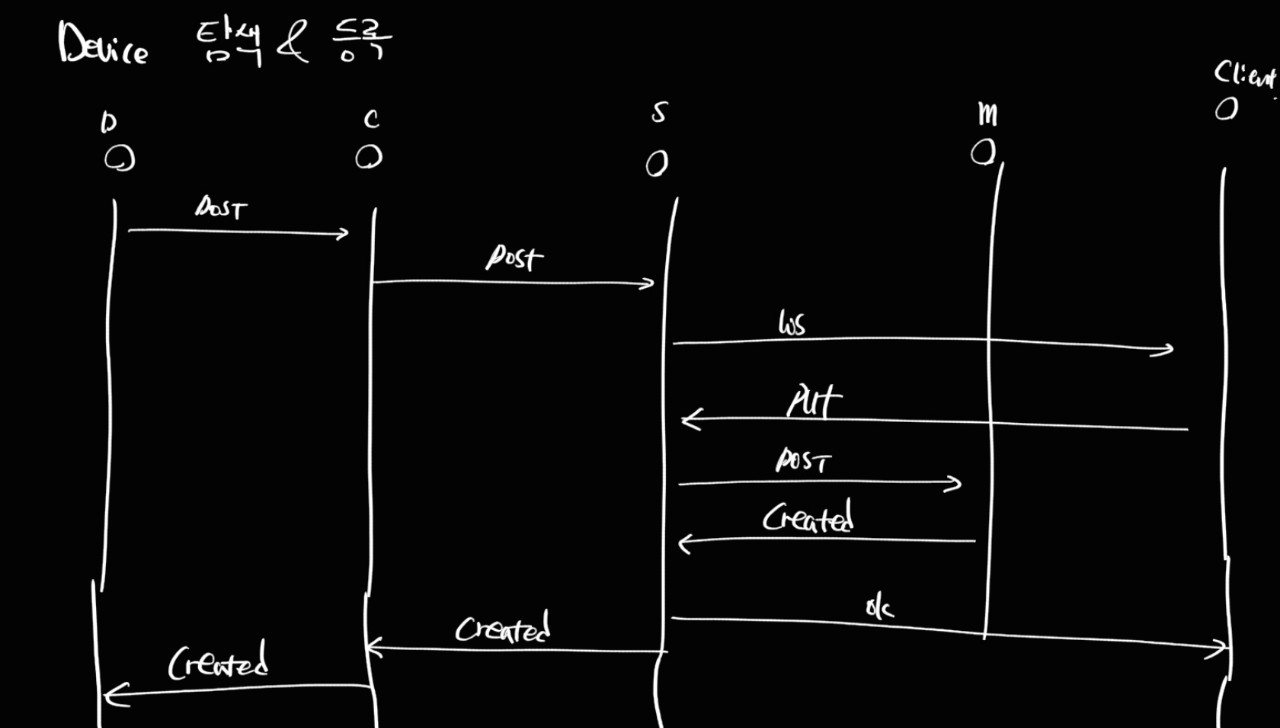 Device 탐색 & 등록
Client
D C S M
POST
Post
WS
Put
POST
Created
ok
Created
Created